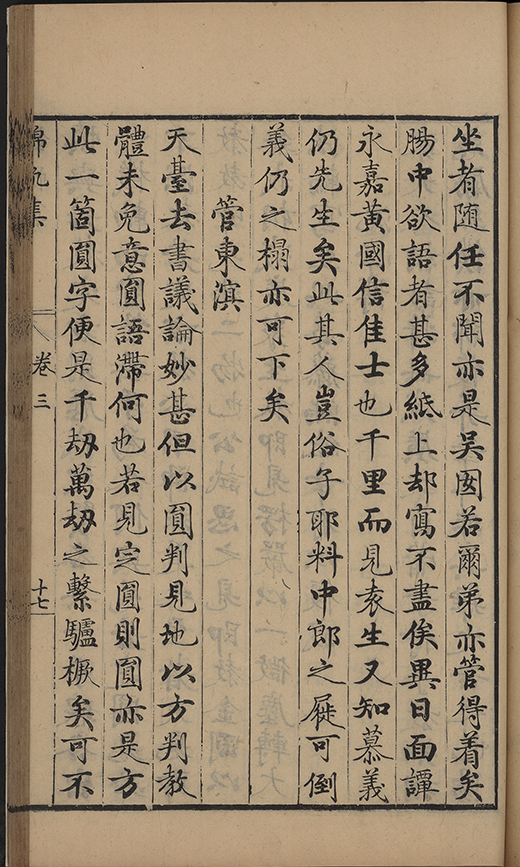 坐者随任不聞亦是吴囡若爾弟亦管得着矣
腸中欲語者甚多紙上却寫不盡俟異日面譚
永嘉黃國信佳士也千里而見袁生又知慕義
仍先生矣此其人豈俗子耶料中郎之屣可倒
義仍之榻亦可下矣
管東溟
天臺去書議論妙甚但以圓判見地以方判教
體未免意圓語滯何也若見定圓則圓亦是方
此一箇圓字便是千刼萬刼之繫驢橛矣可不
錦帆集
卷三
十七